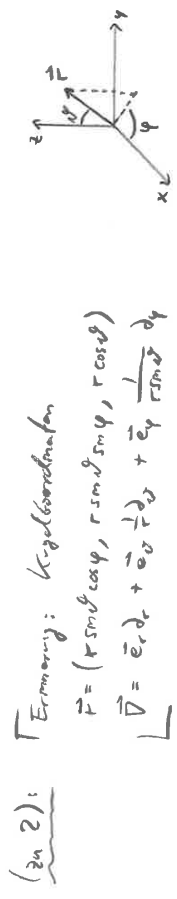 (zu 2):
Erinnerung: Kugelkoordinaten
r⃗ = (r sinϑ cosφ, r sinϑ sinφ, r cosϑ)
∇⃗ = e⃗_r ∂_r + e⃗_ϑ 1/r ∂_ϑ + e⃗_φ 1/(r sinϑ) ∂_φ
z
r⃗
ϑ
y
φ
x